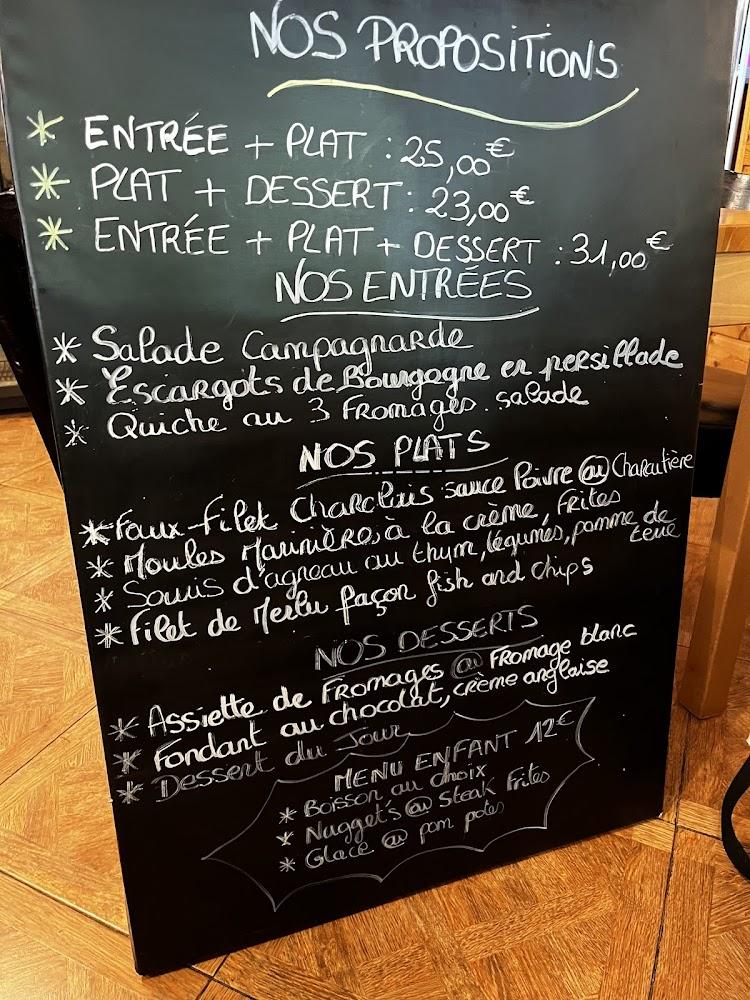 NOS PROPOSITIONS
* ENTRÉE + PLAT : 25,00€
* PLAT + DESSERT : 23,00€
* ENTRÉE + PLAT + DESSERT : 31,00€
NOS ENTRÉES
* Salade Campagnarde
* Escargots de Bourgogne en persillade
* Quiche au 3 Fromages. salade
NOS PLATS
* Faux-filet Charolais sauce Poivre ou Charcutière
* Moules Marinière, à la crème, Frites
* Souris d'agneau au thym, légumes, pomme de terre
* Filet de Merlu façon fish and chips
NOS DESSERTS
* Assiette de Fromages ou Fromage blanc
* Fondant au chocolat, crème anglaise
* Dessert du Jour
MENU ENFANT 12€
* Boisson au choix
* Nugget's ou Steak Frites
* Glace ou pom potes